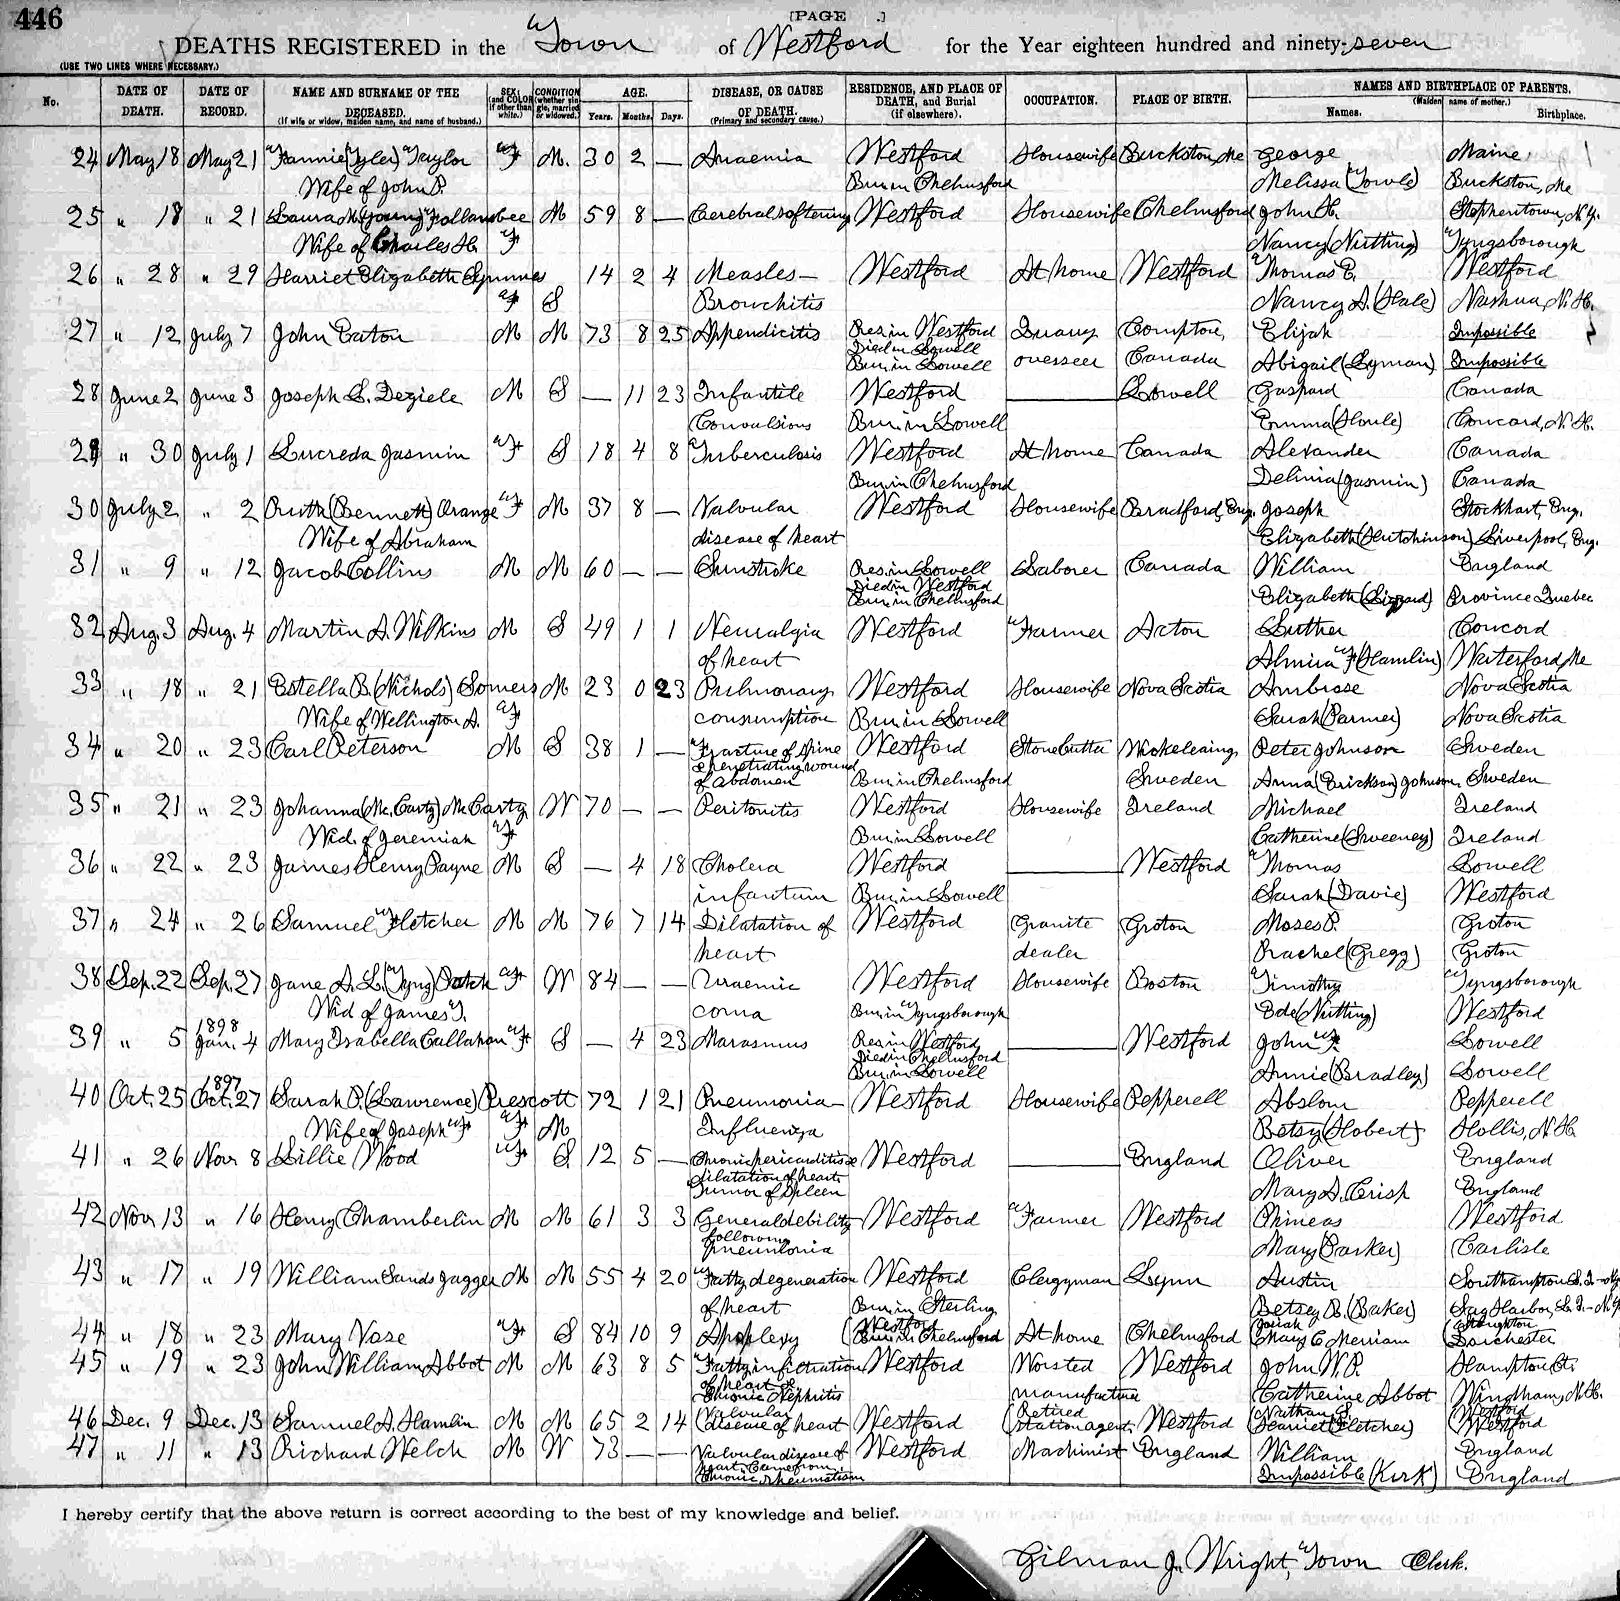 446
[PAGE .]
DEATHS REGISTERED in the Town of Westford for the Year eighteen hundred and ninety-seven
(USE TWO LINES WHERE NECESSARY.)
No. DATE OF DEATH. DATE OF RECORD. NAME AND SURNAME OF THE DECEASED. (If wife or widow, maiden name, and name of husband.) SEX; (and COLOR if other than white.) CONDITION (whether single, married or widowed.) AGE. Years. Months. Days. DISEASE, OR CAUSE OF DEATH. (Primary and secondary cause.) RESIDENCE, AND PLACE OF DEATH, and Burial (if elsewhere). OCCUPATION. PLACE OF BIRTH. NAMES AND BIRTHPLACE OF PARENTS. (Maiden name of mother.) Names. Birthplace.
24 May 18 May 21 Fannie (Tyler) Taylor F M. 30 2 — Anaemia Westford Housewife Buckston, Me George Maine
Wife of John P. Bur. in Chelmsford Melissa (Towle) Buckston, Me
25 " 18 " 21 Laura M. (Young) Follansbee M 59 8 — Cerebral softening Westford Housewife Chelmsford John H. Stephentown, N.Y.
Wife of Charles H. F Nancy (Nutting) Tyngsborough
26 " 28 " 29 Harriet Elizabeth Symmes 14 2 4 Measles — Westford At home Westford Thomas E. Westford
F S Bronchitis Nancy A. (Hale) Nashua, N.H.
27 " 12 July 7 John Eaton M M 73 8 25 Appendicitis Res. in Westford Quarry Compton, Elijah Impossible
Died in Lowell
Bur. in Lowell overseer Canada Abigail (Lyman) Impossible
28 June 2 June 3 Joseph L. Deziele M S — 11 23 Infantile Westford — Lowell Gaspard Canada
Convulsions Bur. in Lowell Emma (Houle) Concord, N.H.
29 " 30 July 1 Lucreda Jasmin F S 18 4 8 Tuberculosis Westford At home Canada Alexander Canada
Bur. in Chelmsford Delima (Jasmin) Canada
30 July 2 " 2 Ruth (Bennett) Orange F M 37 8 — Valvular Westford Housewife Bradford, Eng. Joseph Stockhart, Eng.
Wife of Abraham disease of heart Elizabeth (Hutchinson) Liverpool, Eng.
31 " 9 " 12 Jacob Collins M M 60 — — Sunstroke Res. in Lowell Laborer Canada William England
Died in Westford
Bur. in Chelmsford Elizabeth Province Quebec
32 Aug. 3 Aug. 4 Martin A. Wilkins M S 49 1 1 Neuralgia Westford Farmer Acton Luther Concord
of heart Almira F. (Hamlin) Waterford, Me
33 " 18 " 21 Estella B. (Nichols) Somers M 23 0 23 Pulmonary Westford Housewife Nova Scotia Ambrose Nova Scotia
Wife of Wellington A. F consumption Bur. in Lowell Sarah (Parmer) Nova Scotia
34 " 20 " 23 Carl Peterson M S 38 1 — Fracture of Spine Westford Stone Cutter Peter Johnson Sweden
& penetrating wound
of Abdomen Bur. in Chelmsford Sweden Anna (Erickson) Johnson, Sweden
35 " 21 " 23 Johanna (McCarty) McCarty W 70 — — Peritonitis Westford Housewife Ireland Michael Ireland
Wid. of Jeremiah F Bur. in Lowell Catherine (Sweeney) Ireland
36 " 22 " 23 James Henry Payne M S — 4 18 Cholera Westford — Westford Thomas Lowell
infantum Bur. in Lowell Sarah (Davie) Westford
37 " 24 " 26 Samuel Fletcher M M 76 7 14 Dilatation of Westford Granite Groton Moses P. Groton
heart dealer Rachel (Gregg) Groton
38 Sep. 22 Sep. 27 Jane A. L. (Tyng) Patch F W 84 — — Uraemic Westford Housewife Boston Timothy Tyngsborough
Wid of James T. coma Bur. in Tyngsborough (Nutting) Westford
1898
39 " 5 Jan. 4 Mary Isabella Callahan F S — 4 23 Marasmus Res. in Westford — Westford John F. Lowell
Died in Chelmsford
Bur. in Lowell Annie (Bradley) Lowell
1897
40 Oct. 25 Oct. 27 Sarah P. (Lawrence) Prescott 72 1 21 Pneumonia — Westford Housewife Pepperell Abslom Pepperell
Wife of Joseph F. F M Influenza Betsy (Hobert) Hollis, N.H.
41 " 26 Nov 8 Lillie Wood F S. 12 5 — Chronic pericarditis & Westford — England Oliver England
dilatation of heart
Tumor of Spleen Mary A. Crisp England
42 Nov 13 " 16 Henry Chamberlin M M 61 3 3 General debility Westford Farmer Westford Phineas Westford
following
pneumonia Mary (Parker) Carlisle
43 " 17 " 19 William Sands Jagger M M 55 4 20 Fatty degeneration Westford Clergyman Lynn Austin Southampton L.I.-N.Y.
of heart Bur. in Sterling Betsey B. (Baker) Sag Harbor, L.I.-N.Y.
Westford Josiah Stoughton
44 " 18 " 23 Mary Vose F S 84 10 9 Apoplexy Bur. in Chelmsford At home Chelmsford Mary C Merriam Dorchester
45 " 19 " 23 John William Abbot M M 63 8 5 Fatty infiltration Westford Worsted Westford John W. P. Hampton Ct.
of heart &
Chronic Nephritis manufacture Catherine Abbot Windham, N.H.
Valvular Retired Nathan S. Westford
46 Dec. 9 Dec. 13 Samuel A. Hamlin M M 65 2 14 disease of heart Westford station agent, Westford Harriet (Fletcher) Westford
47 " 11 " 13 Richard Welch M W 73 — — Valvular disease of Westford Machinist England William England
heart, Came from
Chronic Rheumatism Impossible (Kirk) England
I hereby certify that the above return is correct according to the best of my knowledge and belief.
Gilman J. Wright, Town Clerk.